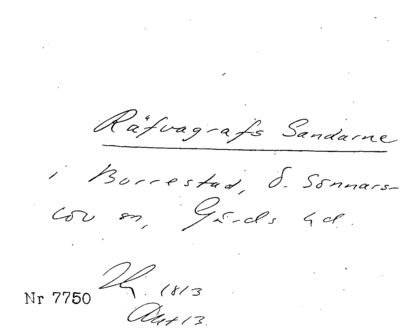 Räfvagrafs Sandarne
i Borrestad, Ö. Sönnars-
löv sn, Gärds hd.
Nr 7750
1813
Akt 13.